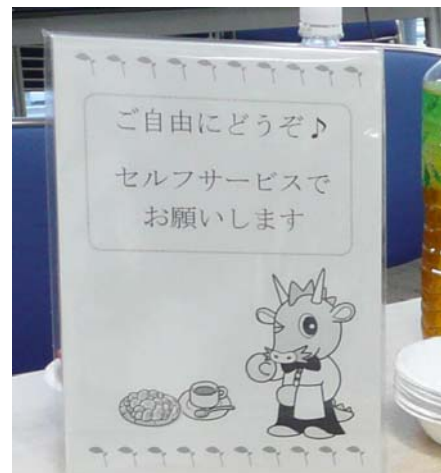 ご自由にどうぞ♪
セルフサービスで
お願いします